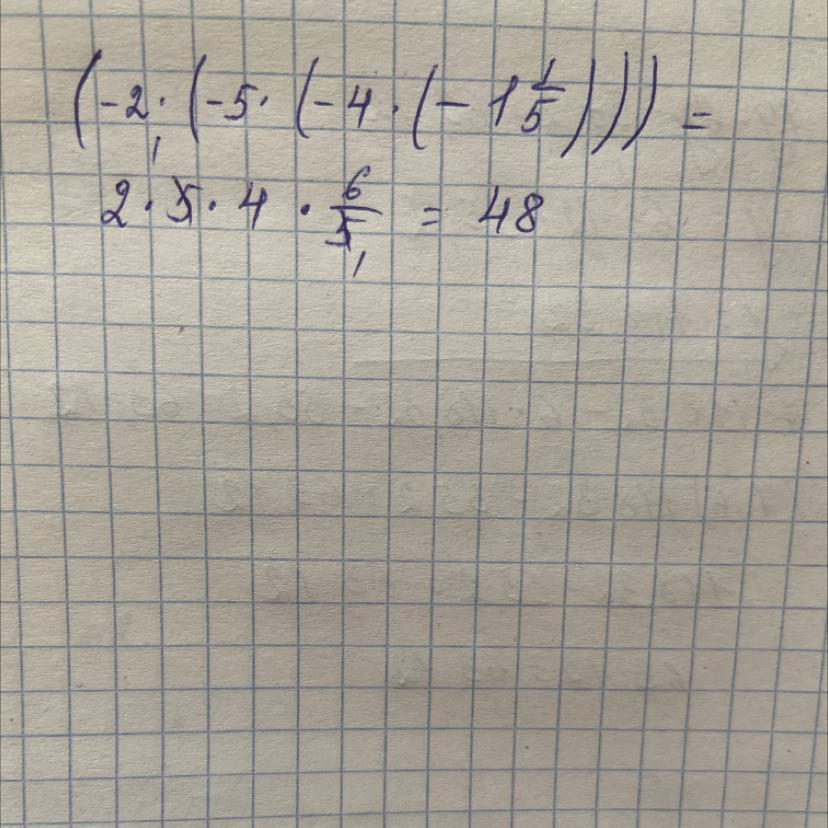 (-2·(-5·(-4·(-1 1/5)))) =
2·5·4·6/5 = 48